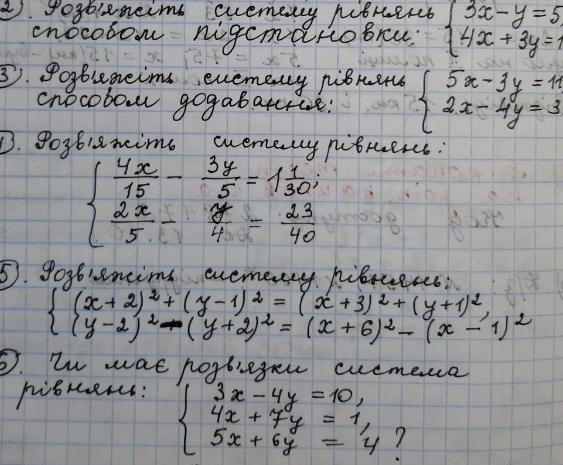 2). Розв'яжіть систему рівнянь { 3x-y=5,
способом підстановки: 4x+3y=1
3). Розв'яжіть систему рівнянь { 5x-3y=11
способом додавання: 2x-4y=3
Розв'яжіть систему рівнянь:
{ 4x/15 - 3y/5 = 1 1/30;
2x/5 y/4 = 23/40
5). Розв'яжіть систему рівнянь:
{ (x+2)²+(y-1)² = (x+3)²+(y+1)²,
(y-2)²-(y+2)² = (x+6)²-(x-1)²
6). Чи має розв'язки система
рівнянь: { 3x-4y=10,
4x+7y=1,
5x+6y=4?